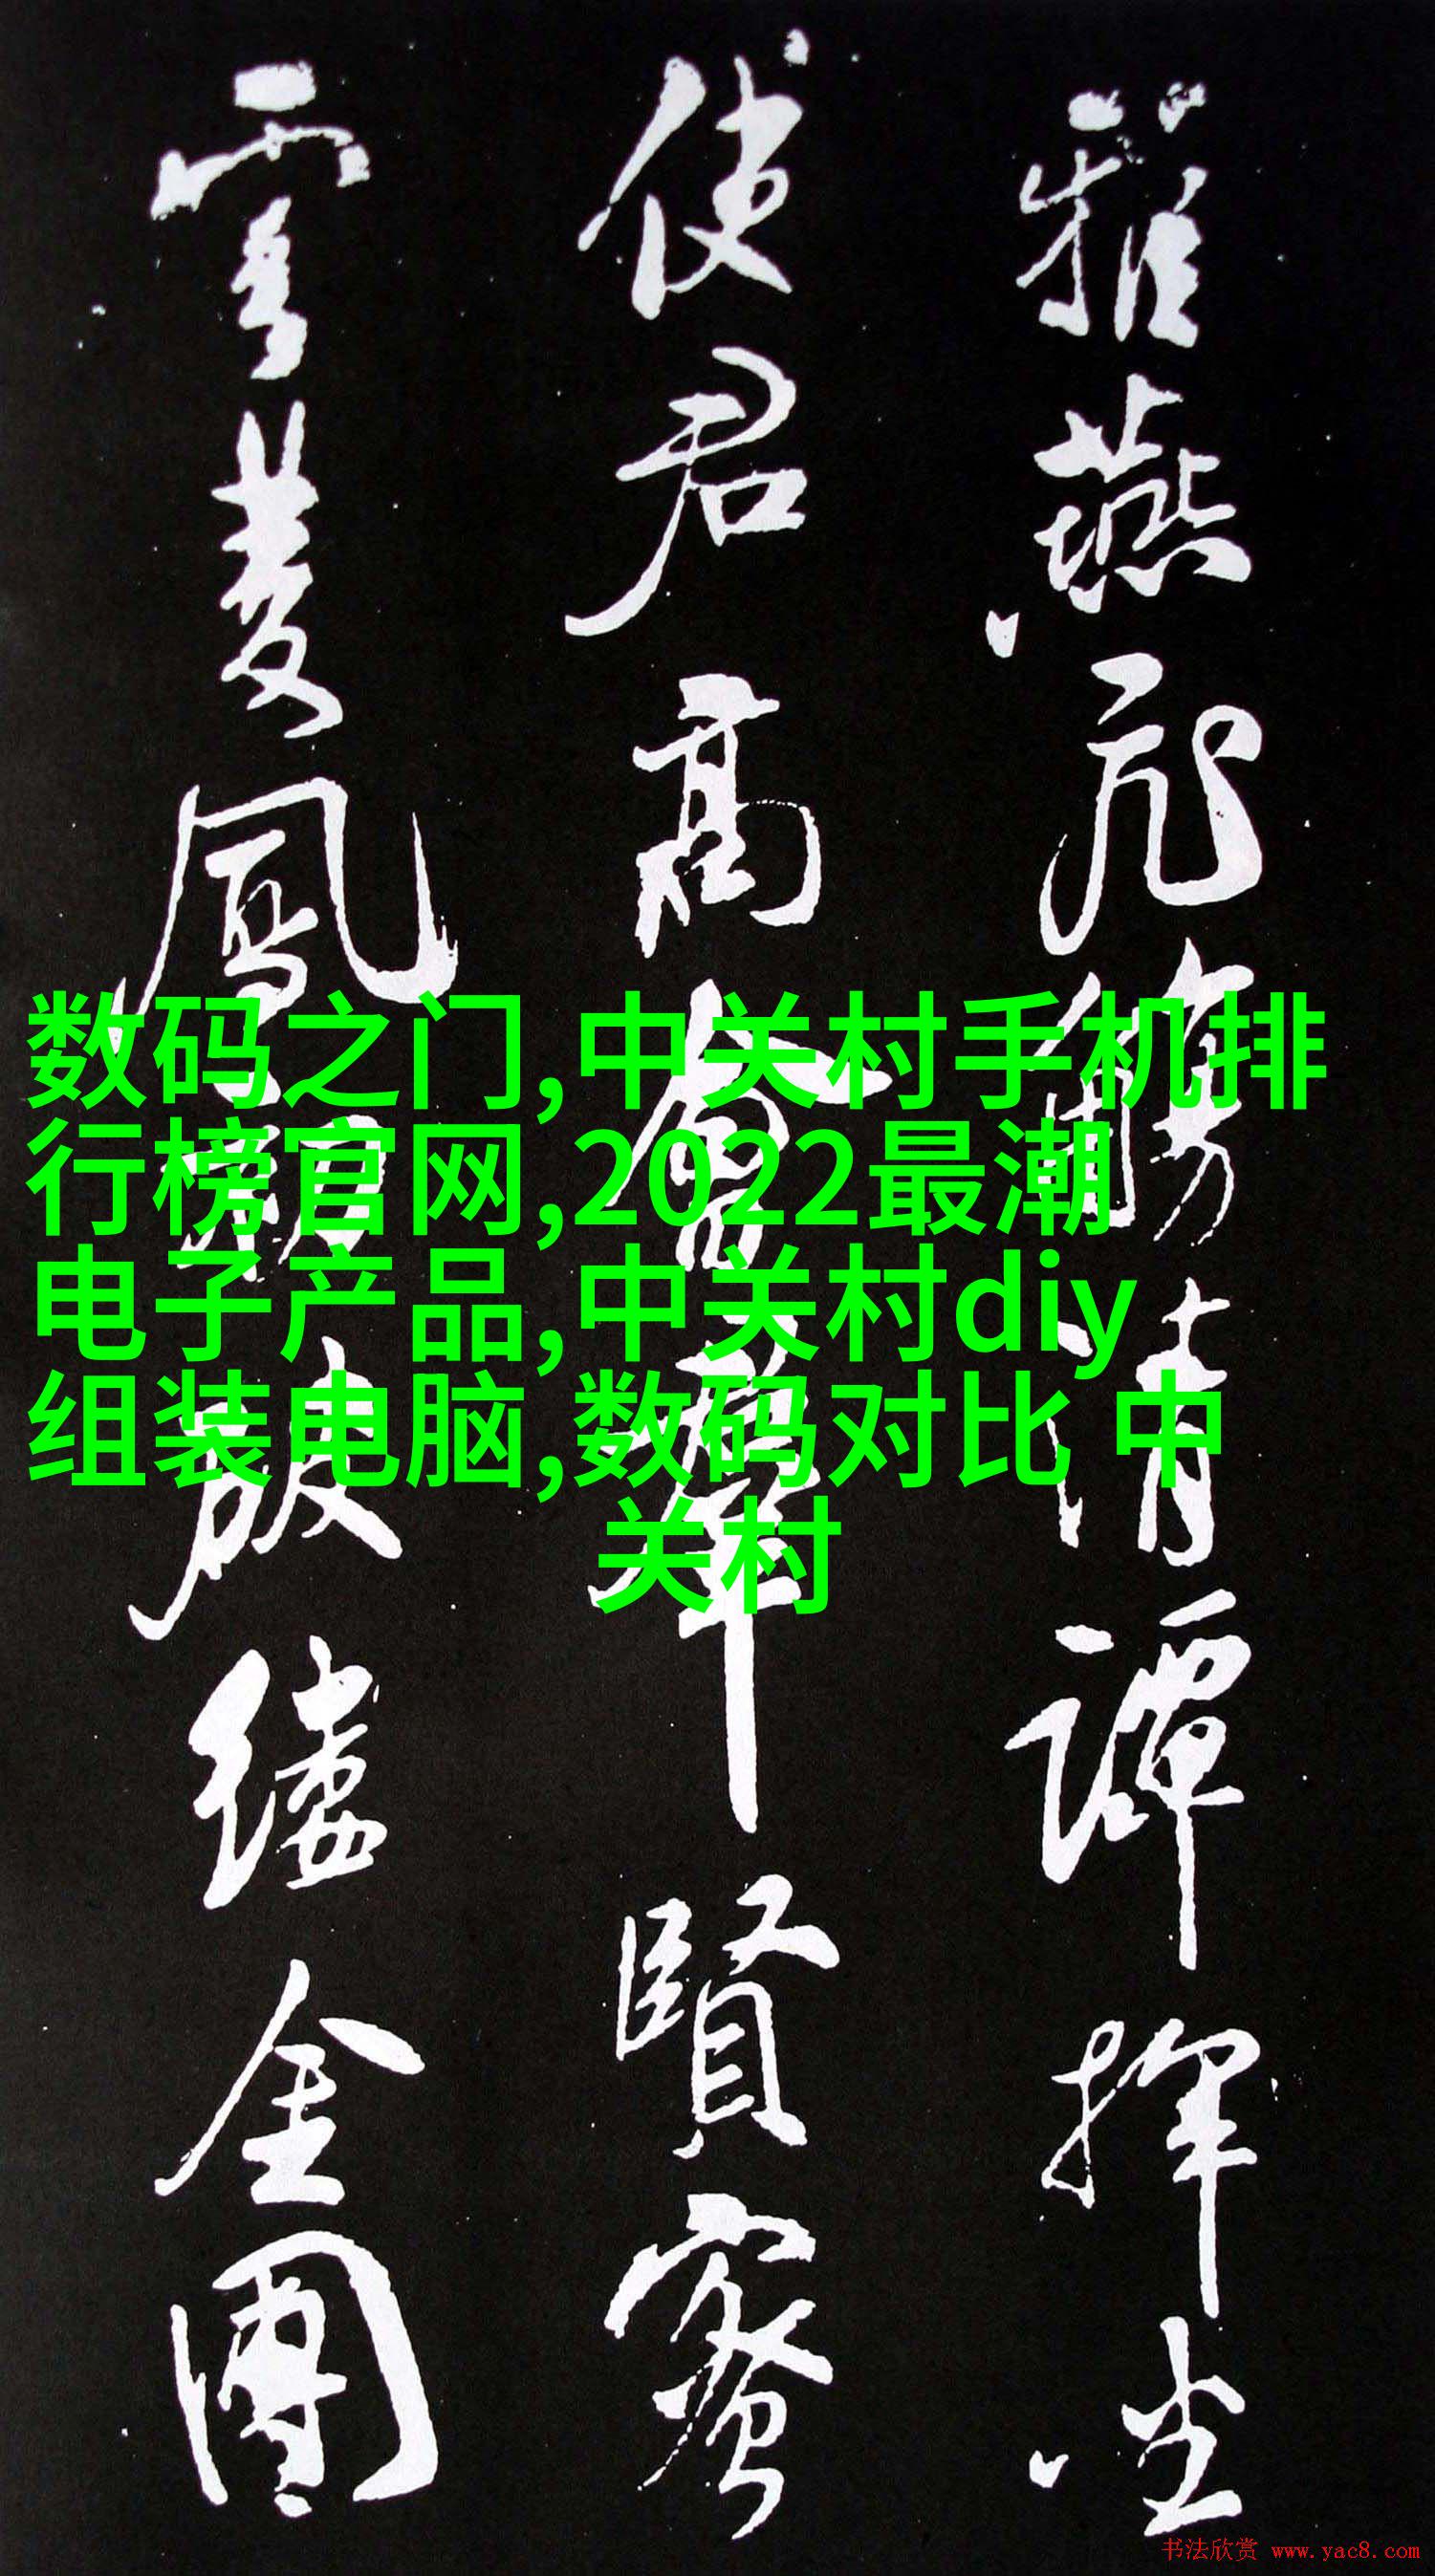 雅燕飛觴清譚揮坐
使君高會群賢密
雲雙鳳初破縷金團
数码之门,中关村手机排
行榜官网,2022最潮
电子产品,中关村diy
组装电脑,数码对比 中
关村
书法欣赏 www.yac8.com